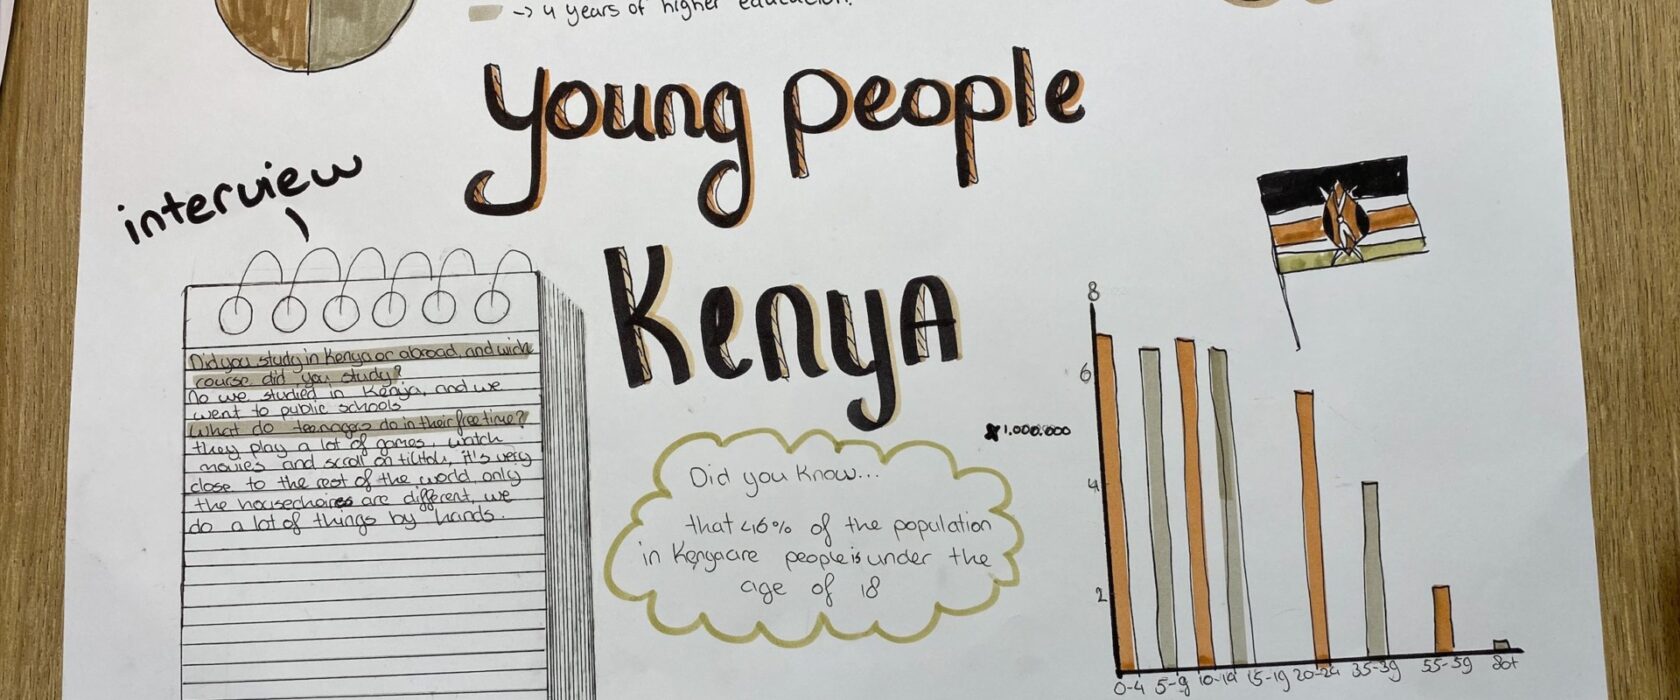 -> 4 years of higher education.
young people
Kenya
interview
Did you study in Kenya or abroad, and wich
course did you study?
No we studied in Kenja, and we
went to public schools
What do teenagers do in their free time?
they play a lot of games, watch
movies and scroll on tiktok, it's very
close to the rest of the world only
the housechoires are different, we
do a lot of things by hands.
Did you know...
that 46% of the population
in Kenya are people is under the
age of 18
x 1.000.000
8
6
4
2
0-4 5-9 10-14 15-19 20-24 35-39 55-59 80+